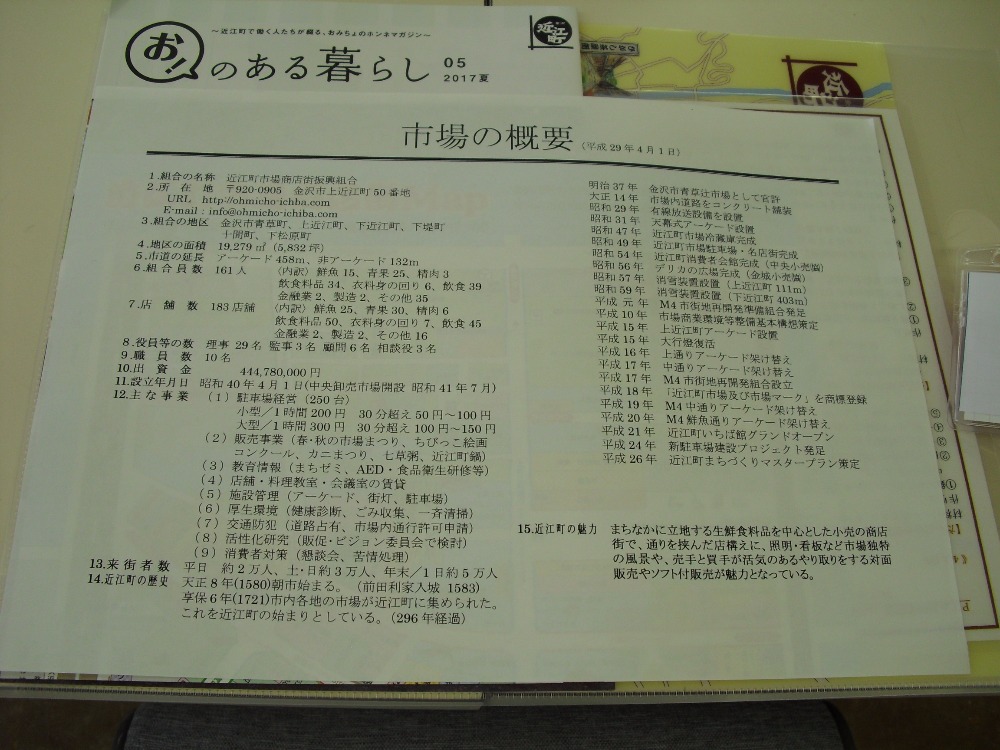 ～近江町で働く人たちが綴る、おみちょのホンネマガジン～
お!のある暮らし 05
2017夏
近江町
近江町
市場の概要(平成29年4月1日)
1.組合の名称 近江町市場商店街振興組合
2.所在地 〒920-0905 金沢市上近江町50番地
URL http://ohmicho-ichba.com
E-mail : info@ohmicho-ichiba.com
3.組合の地区 金沢市青草町、上近江町、下近江町、下堤町
十間町、下松原町
4.地区の面積 19,279㎡(5,832坪)
5.市道の延長 アーケード458m、非アーケード132m
6.組合員数 161人 (内訳)鮮魚15、青果25、精肉3
飲食料品34、衣料身の回り6、飲食39
金融業2、製造2、その他35
7.店舗数 183店舗 (内訳)鮮魚25、青果30、精肉6
飲食料品50、衣料身の回り7、飲食45
金融業2、製造2、その他16
8.役員等の数 理事29名 監事3名 顧問6名 相談役3名
9.職員数 10名
10.出資金 444,780,000円
11.設立年月日 昭和40年4月1日(中央卸売市場開設 昭和41年7月)
12.主な事業 (1)駐車場経営(250台)
小型/1時間200円 30分超え50円～100円
大型/1時間300円 30分超え100円～150円
(2)販売事業(春・秋の市場まつり、ちびっこ絵画
コンクール、カニまつり、七草粥、近江町鍋)
(3)教育情報(まちゼミ、AED・食品衛生研修等)
(4)店舗・料理教室・会議室の賃貸
(5)施設管理(アーケード、街灯、駐車場)
(6)厚生環境(健康診断、ごみ収集、一斉清掃)
(7)交通防犯(道路占有、市場内通行許可申請)
(8)活性化研究(販促・ビジョン委員会で検討)
(9)消費者対策(懇談会、苦情処理)
13.来街者数 平日 約2万人、土・日約3万人、年末/1日約5万人
14.近江町の歴史 天正8年(1580)朝市始まる。(前田利家入城 1583)
享保6年(1721)市内各地の市場が近江町に集められた。
これを近江町の始まりとしている。(296年経過)
明治37年 金沢市青草辻市場として官許
大正14年 市場内道路をコンクリート舗装
昭和29年 有線放送設備を設置
昭和31年 天幕式アーケード設置
昭和47年 近江町市場冷蔵庫完成
昭和49年 近江町市場駐車場・名店街完成
昭和54年 近江町消費者会館完成(中央小売協)
昭和56年 デリカの広場完成(金城小売協)
昭和57年 消雪装置設置(上近江町111m)
昭和59年 消雪装置設置(下近江町403m)
平成元年 M4市街地再開発準備組合発足
平成10年 市場商業環境等整備基本構想策定
平成15年 上近江町アーケード設置
平成15年 大行燈復活
平成16年 上通りアーケード架け替え
平成17年 中通りアーケード架け替え
平成17年 M4市街地再開発組合設立
平成18年 「近江町市場及び市場マーク」を商標登録
平成19年 M4中通りアーケード架け替え
平成20年 M4鮮魚通りアーケード架け替え
平成21年 近江町いちば館グランドオープン
平成24年 新駐車場建設プロジェクト発足
平成26年 近江町まちづくりマスタープラン策定
15.近江町の魅力 まちなかに立地する生鮮食料品を中心とした小売の商店
街で、通りを挟んだ店構えに、照明・看板など市場独特
の風景や、売手と買手が活気のあるやり取りをする対面
販売やソフト付販売が魅力となっている。